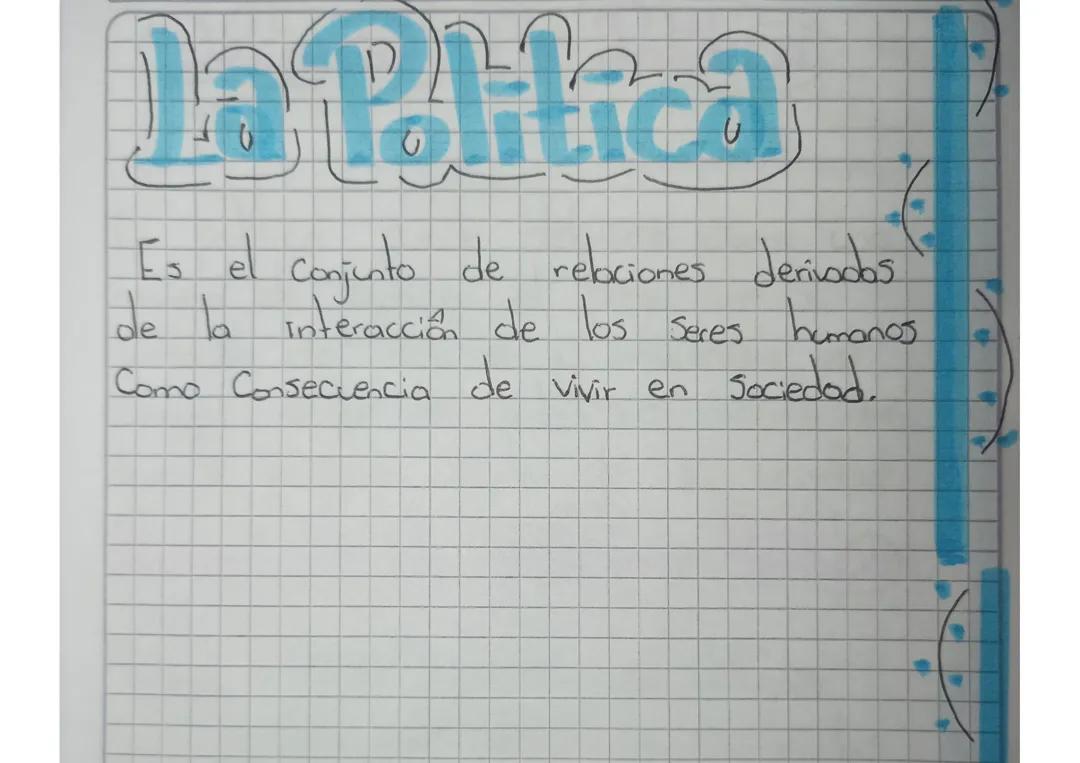 La Politica
Es el conjunto de relaciones derivadas
de la interacción de los seres humanos
Como Consecuencia de vivir en Sociedad.